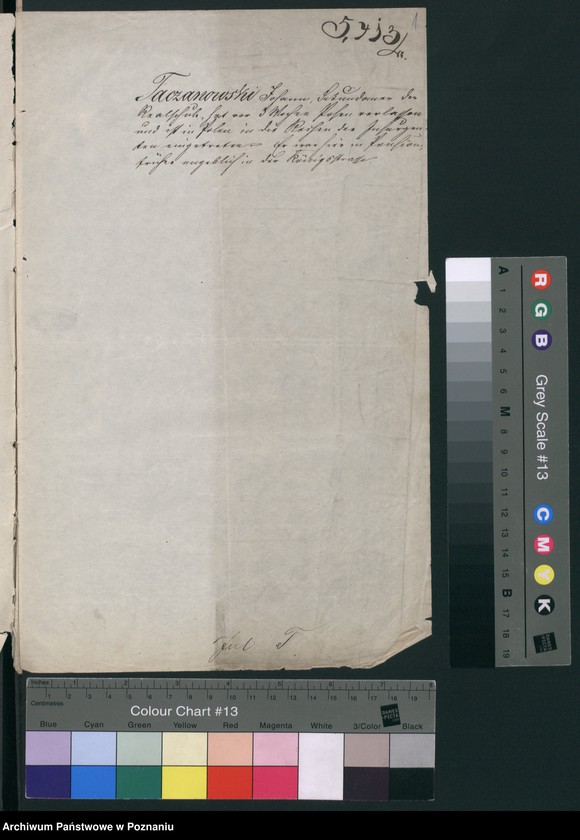 1
5,413
Taczanowski Johann, Sekundaner der
Realschule, hat vor 3 Wochen Posen verlassen
und ist in Polen in die Reihen der Insurgen-
ten eingetreten. Er war hier in Pension,
früher angeblich in der Königsstraße
T.
A 1 2 3 4 5 6 M 8 9 10 11 12 13 14 15 B 17 18 19
R G B
Grey Scale #13
C M Y K
Inches 1 2 3 4 5 6 7 8
Centimetres 1 2 3 4 5 6 7 8 9 10 11 12 13 14 15 16 17 18 19
Colour Chart #13
Blue Cyan Green Yellow Red Magenta White 3/Color Black
Archiwum Państwowe w Poznaniu